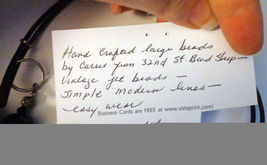 Hand Crafted large beads
by Carrie from 32nd St. Bead Shop —
vintage jet beads —
simple modern lines —
easy wear
Business Cards are FREE at www.vistaprint.com!